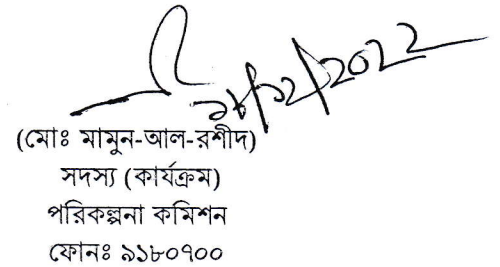 (মোঃ মামুন-আল-রশীদ)
সদস্য (কার্যক্রম)
পরিকল্পনা কমিশন
ফোনঃ ৯১৮০৭০০